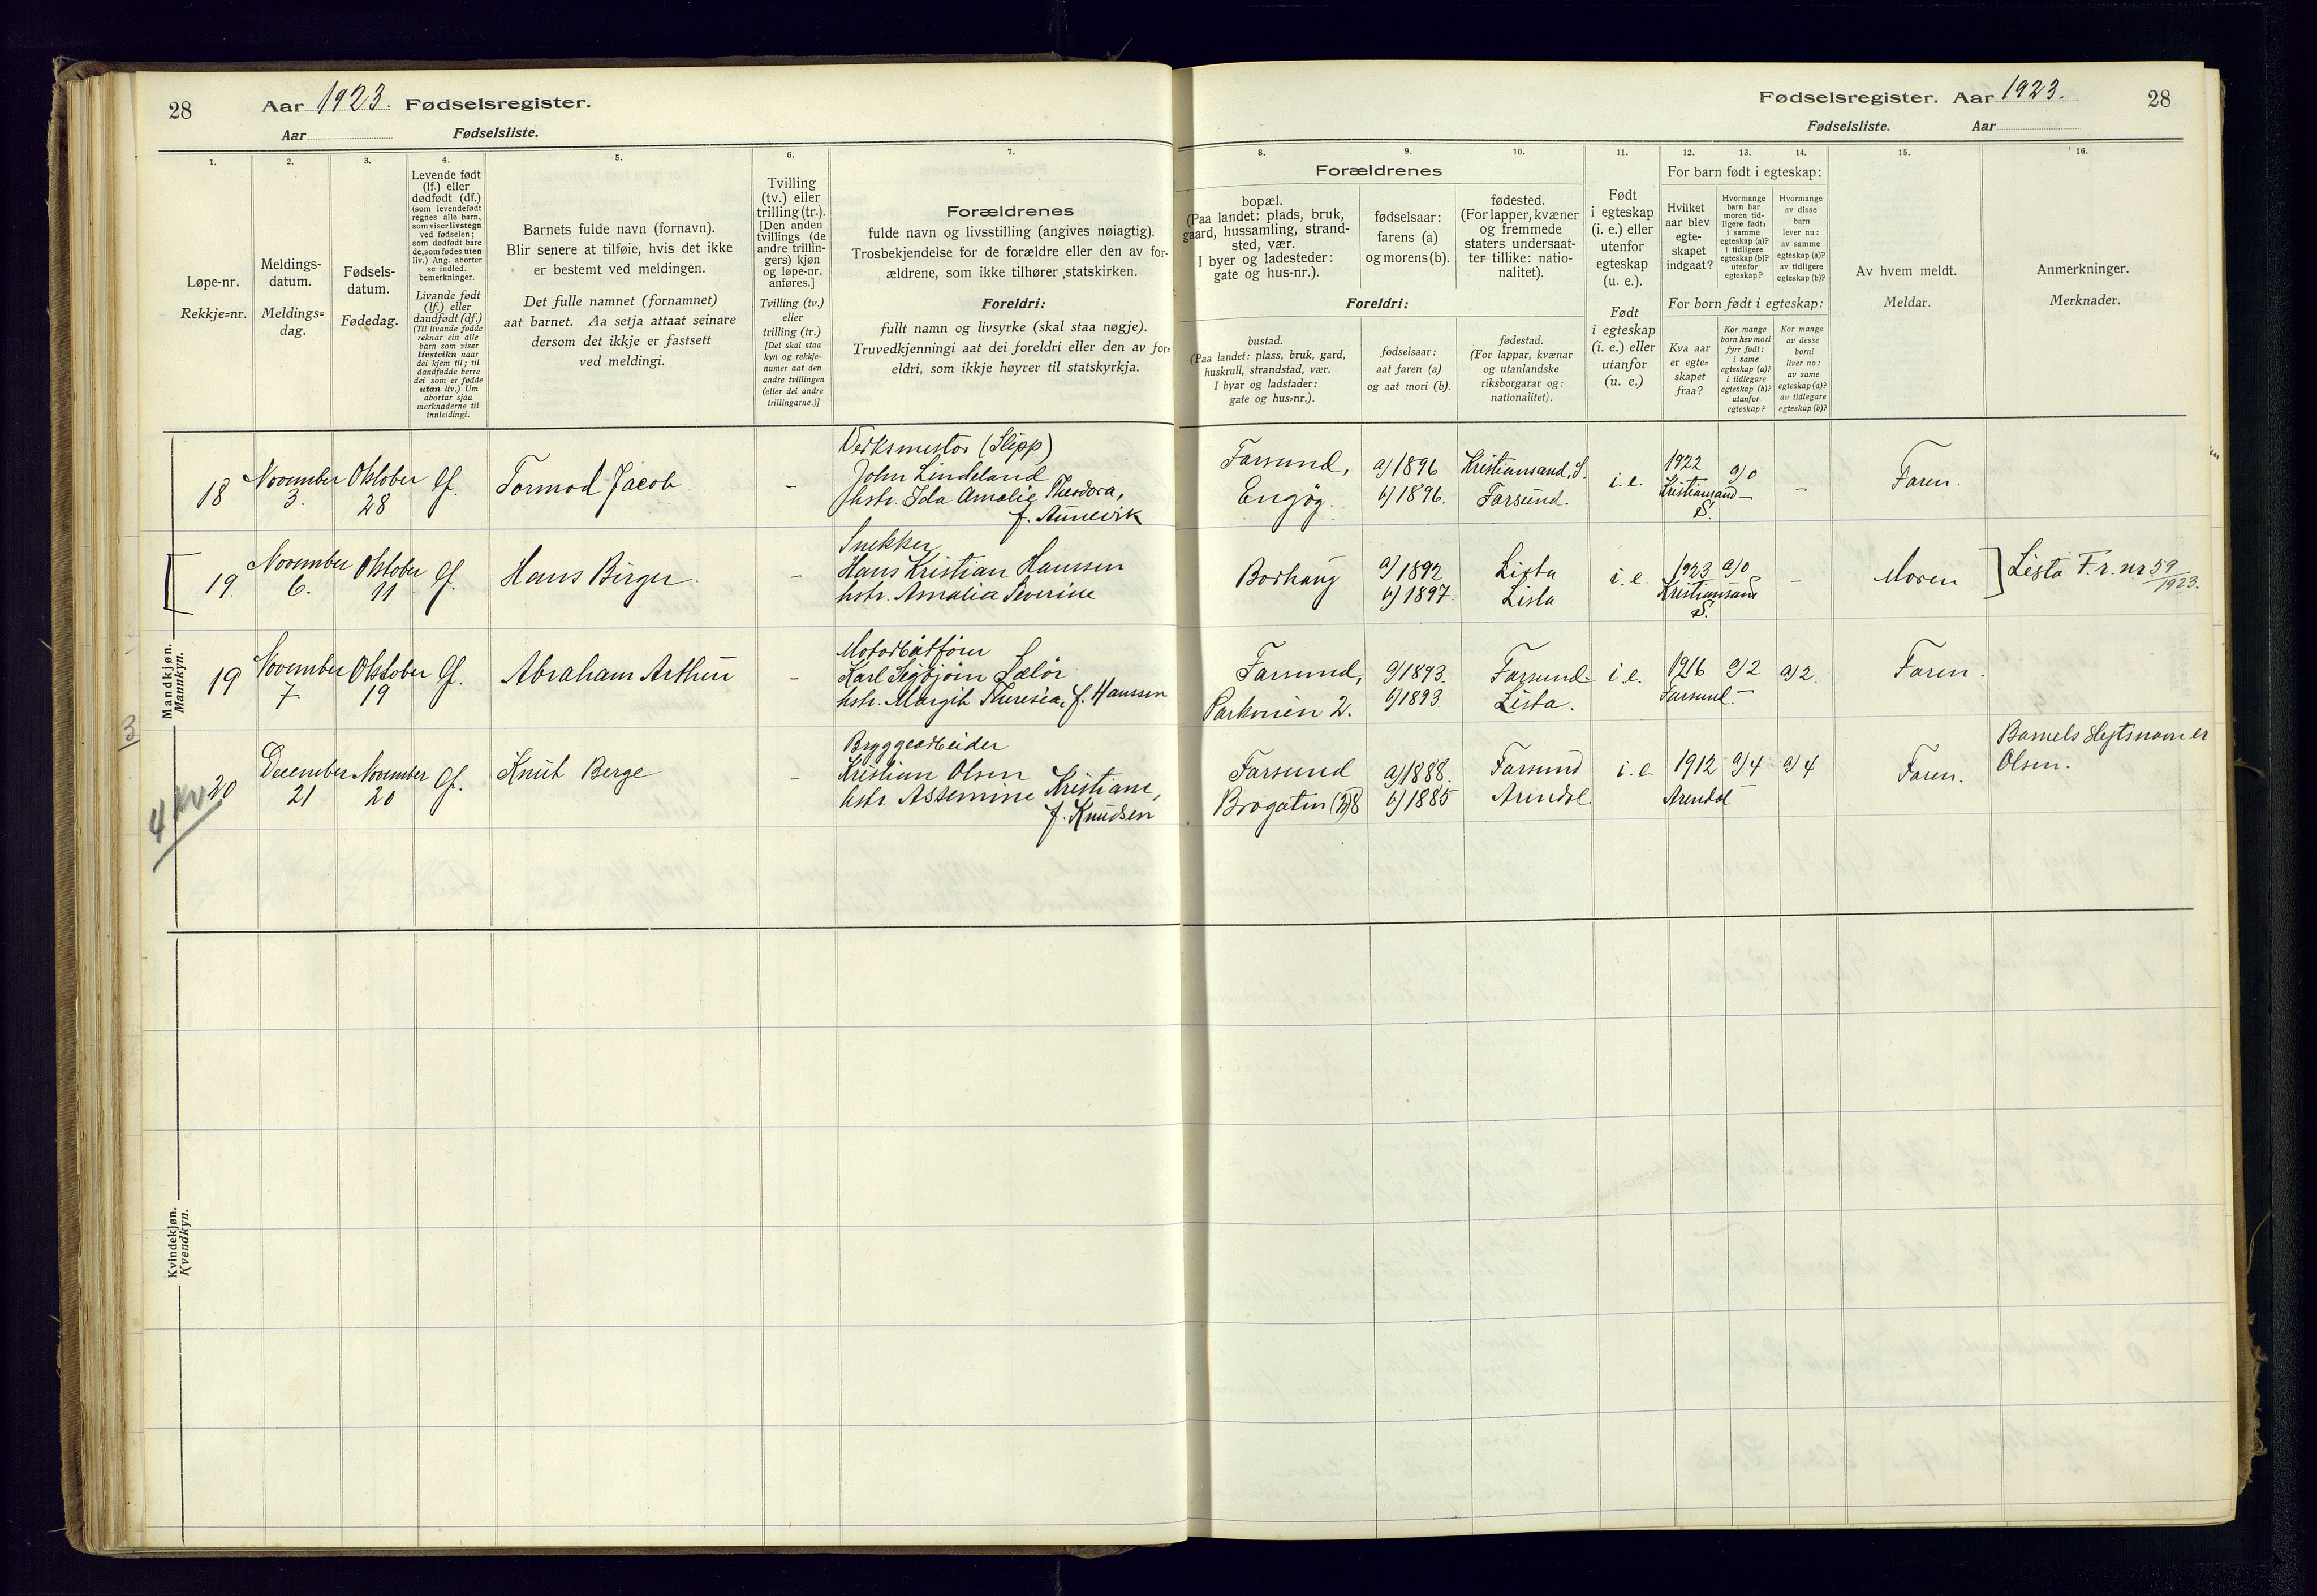 28
Aar 1923. Fødselsregister.
Aar Fødselsliste.
Fødselsregister. Aar 1923.
28
Fødselsliste. Aar
1.
Løpe-nr.
Rekkje=nr.
2.
Meldings-
datum.
Meldings=
dag.
3.
Fødsels-
datum.
Fødedag.
4.
Levende født
(lf.) eller
dødfødt (df.)
(som levendefødt
regnes alle barn,
som viser livstegn
ved fødselen;
som dødfødt bare
de, som fødes uten
liv.) Ang. aborter
se indled.
bemerkninger.
Livande født
(lf.) eller
daudfødt (df.)
(Til livande fødde
reknar ein alle
barn som viser
livsteikn naar
dei kjem til; til
daudfødde berre
dei som er fødde
utan liv.) Um
abortar sjaa
merknaderne til
innleidingi.
5.
Barnets fulde navn (fornavn).
Blir senere at tilføie, hvis det ikke
er bestemt ved meldingen.
Det fulle namnet (fornamnet)
aat barnet. Aa setja attaat seinare
dersom det ikkje er fastsett
ved meldingi.
6.
Tvilling
(tv.) eller
trilling (tr.).
[Den anden
tvillings (de
andre trillin-
gers) kjøn
og løpe-nr.
anføres.]
Tvilling (tv.)
eller
trilling (tr.)
[Det skal staa
kyn og rekkje-
numer aat den
andre tvillingen
(eller dei andre
trillingarne.)]
7.
Forældrenes
fulde navn og livsstilling (angives nøiagtig).
Trosbekjendelse for de forældre eller den av for-
ældrene, som ikke tilhører statskirken.
Foreldri:
fullt namn og livsyrke (skal staa nøgje).
Truvedkjenningi aat dei foreldri eller den av for=
eldri, som ikkje høyrer til statskyrkja.
8.
Forældrenes
bopæl.
(Paa landet: plads, bruk,
gaard, hussamling, strand-
sted, vær.
I byer og ladesteder:
gate og hus-nr.).
Foreldri:
bustad.
(Paa landet: plass, bruk, gard,
huskrull, strandstad, vær.
I byar og ladstader:
gate og hus=nr.).
9.
fødselsaar:
farens (a)
og morens (b).
fødselsaar:
aat faren (a)
og aat mori (b).
10.
fødested.
(For lapper, kvæner
og fremmede
staters undersaat-
ter tillike: natio-
nalitet).
fødestad.
(For lappar, kvænar
og utanlandske
riksborgarar og:
nationalitet).
11.
Født
i egteskap
(i. e.) eller
utenfor
egteskap
(u. e.).
Født
i egteskap
(i. e.) eller
utanfor
(u. e.)
12.
13.
14.
For barn født i egteskap:
Hvilket
aar blev
egte-
skapet
indgaat?
Hvormange
barn har
moren tid-
ligere født:
i samme
egteskap (a)?
i tidligere
egteskap (b)?
utenfor
egteskap?
Hvormange
av disse
barn
lever nu:
av samme
egteskap (a)?
av tidligere
egteskap (b)?
For born født i egteskap:
Kva aar
er egte-
skapet
fraa?
Kor mange
born hev mori
fyrr født:
i same
egteskap (a)?
i tidlegare
egteskap (b)?
utanfor
egteskap?
Kor mange
av desse
borni
liver no:
av same
egteskap (a)?
av tidlegare
egteskap (b)?
15.
Av hvem meldt.
Meldar.
16.
Anmerkninger.
Merknader.
Mandkjøn.
Mannkyn.
18
November
3.
Oktober
28
lf.
Tormod Jacob
–
Verksmester (Slipp)
John Lindeland
hstr. Ida Amalie Theodora,
f. Aunevik
Farsund,
Engøg.
a) 1896
b) 1896.
Kristiansand, S.
Farsund.
i. e.
1922
Kristiansand
S.
a) 0
–
–
Faren.
19
November
6.
Oktober
11
lf.
Hans Birger.
–
Snekker
Hans Kristian Hanssen
hstr. Amalia Severine
Borhaug
a) 1892
b) 1897.
Lista
Lista
i. e.
1923
Kristiansand
S.
a) 0
–
Moren
Lista F.r. nr 59/1923.
19
November
7.
Oktober
19
lf.
Abraham Arthur
–
Motorbåtfører
Karl Sigbjørn Sælør
hstr. Margit Theresia, f. Hanssen
Farsund,
Parkveien 2.
a) 1893.
b) 1893.
Farsund.
Lista.
i e.
1916
Farsund
a) 2
–
a) 2.
Faren.
3
4
20
December
21
November
20
lf.
Knut Berge
–
Bryggearbeider
Kristian Olsen
hstr. Assemine Kristiane,
f. Knudsen
Farsund
Brogaten (3) 8
a) 1888.
b) 1885
Farsund
Arendal.
i. e.
1912
Arendal
a) 4
–
a) 4
Faren.
Barnets slegtsnavn er
Olsen.
Kvindekjøn.
Kvendkyn.